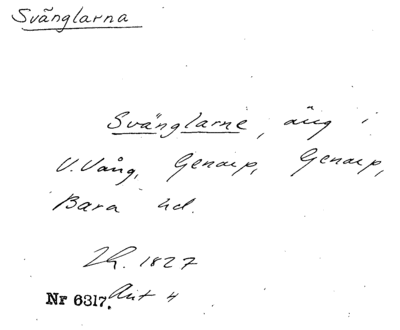 Svänglarna
Svänglarne, äng i
V. Vång, Genarp, Genarp,
Bara hd.
Lh. 1827
Nr 6317. Akt 4